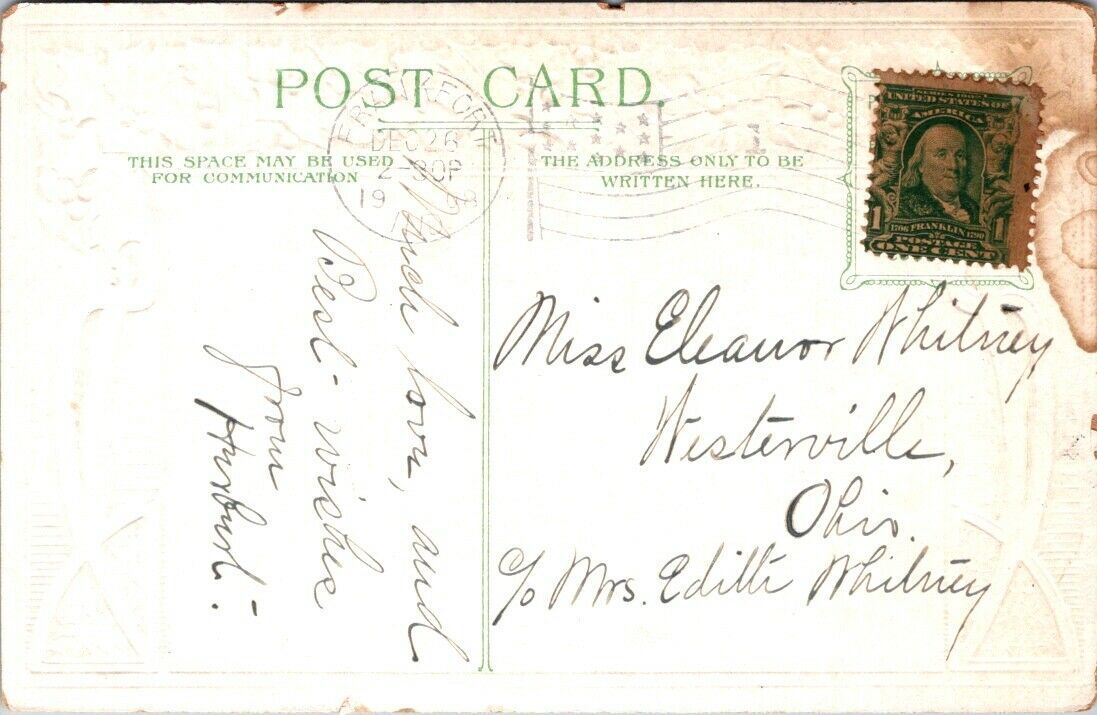 POST CARD.
THIS SPACE MAY BE USED
FOR COMMUNICATION
THE ADDRESS ONLY TO BE
WRITTEN HERE.
DEC 26
2-30P
19
SERIES 1902
UNITED STATES OF
AMERICA
1 1
1706 FRANKLIN 1790
POSTAGE
ONE CENT
Much love, and
Best-wishes
from
Hurburt.
Miss Eleanor Whitney
Westerville,
Ohio.
c/o Mrs. Edith Whitney